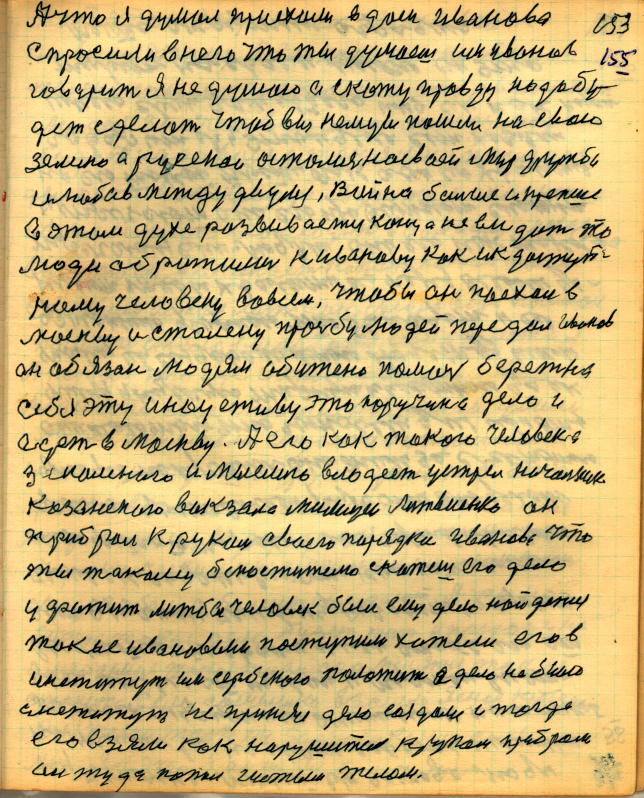 А что я думал приехали в дом Иванова 153
спросили в него что ты думаеш им Иванов 155
говорит я не думаю а скажу правду надо бу
дет сделат чтоб вы немцы пошли на свою
землю а руской остался на своей мир дружба
и любов между двумя, Война
в этом духе развивается конца не видат то
люди обратилис к Иванову как к доступ
ному человеку во всем, чтобы он поехал в
москву и сталену прозбу людей передал Иванов
он обязан людям обижено помоч берет на
себя эту иницетиву это поручина дело и
едет в москву. А его как такого человека
влодеет устрел началник
Казанского вокзала милиции Литвиенко он
прибрал к рукам своего порядка Иванова что
ты такому скажеш его дело
у дратит литба человек были ему дело найдения
также Ивановым поступили хотели его в
институт им сербского положит а дело на было
институт не приняли дело создали и тогда
его взяли как нарушителя к рукам прибрали
он туда попал чистым телом.